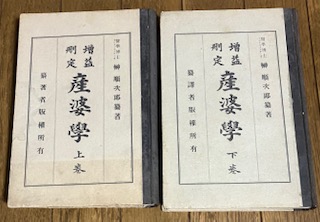 醫學博士 榊順次郎纂著
增益
刪定
產婆學
上卷
纂著者版權所有
醫學博士 榊順次郎纂著
增益
刪定
產婆學
下卷
纂譯者版權所有